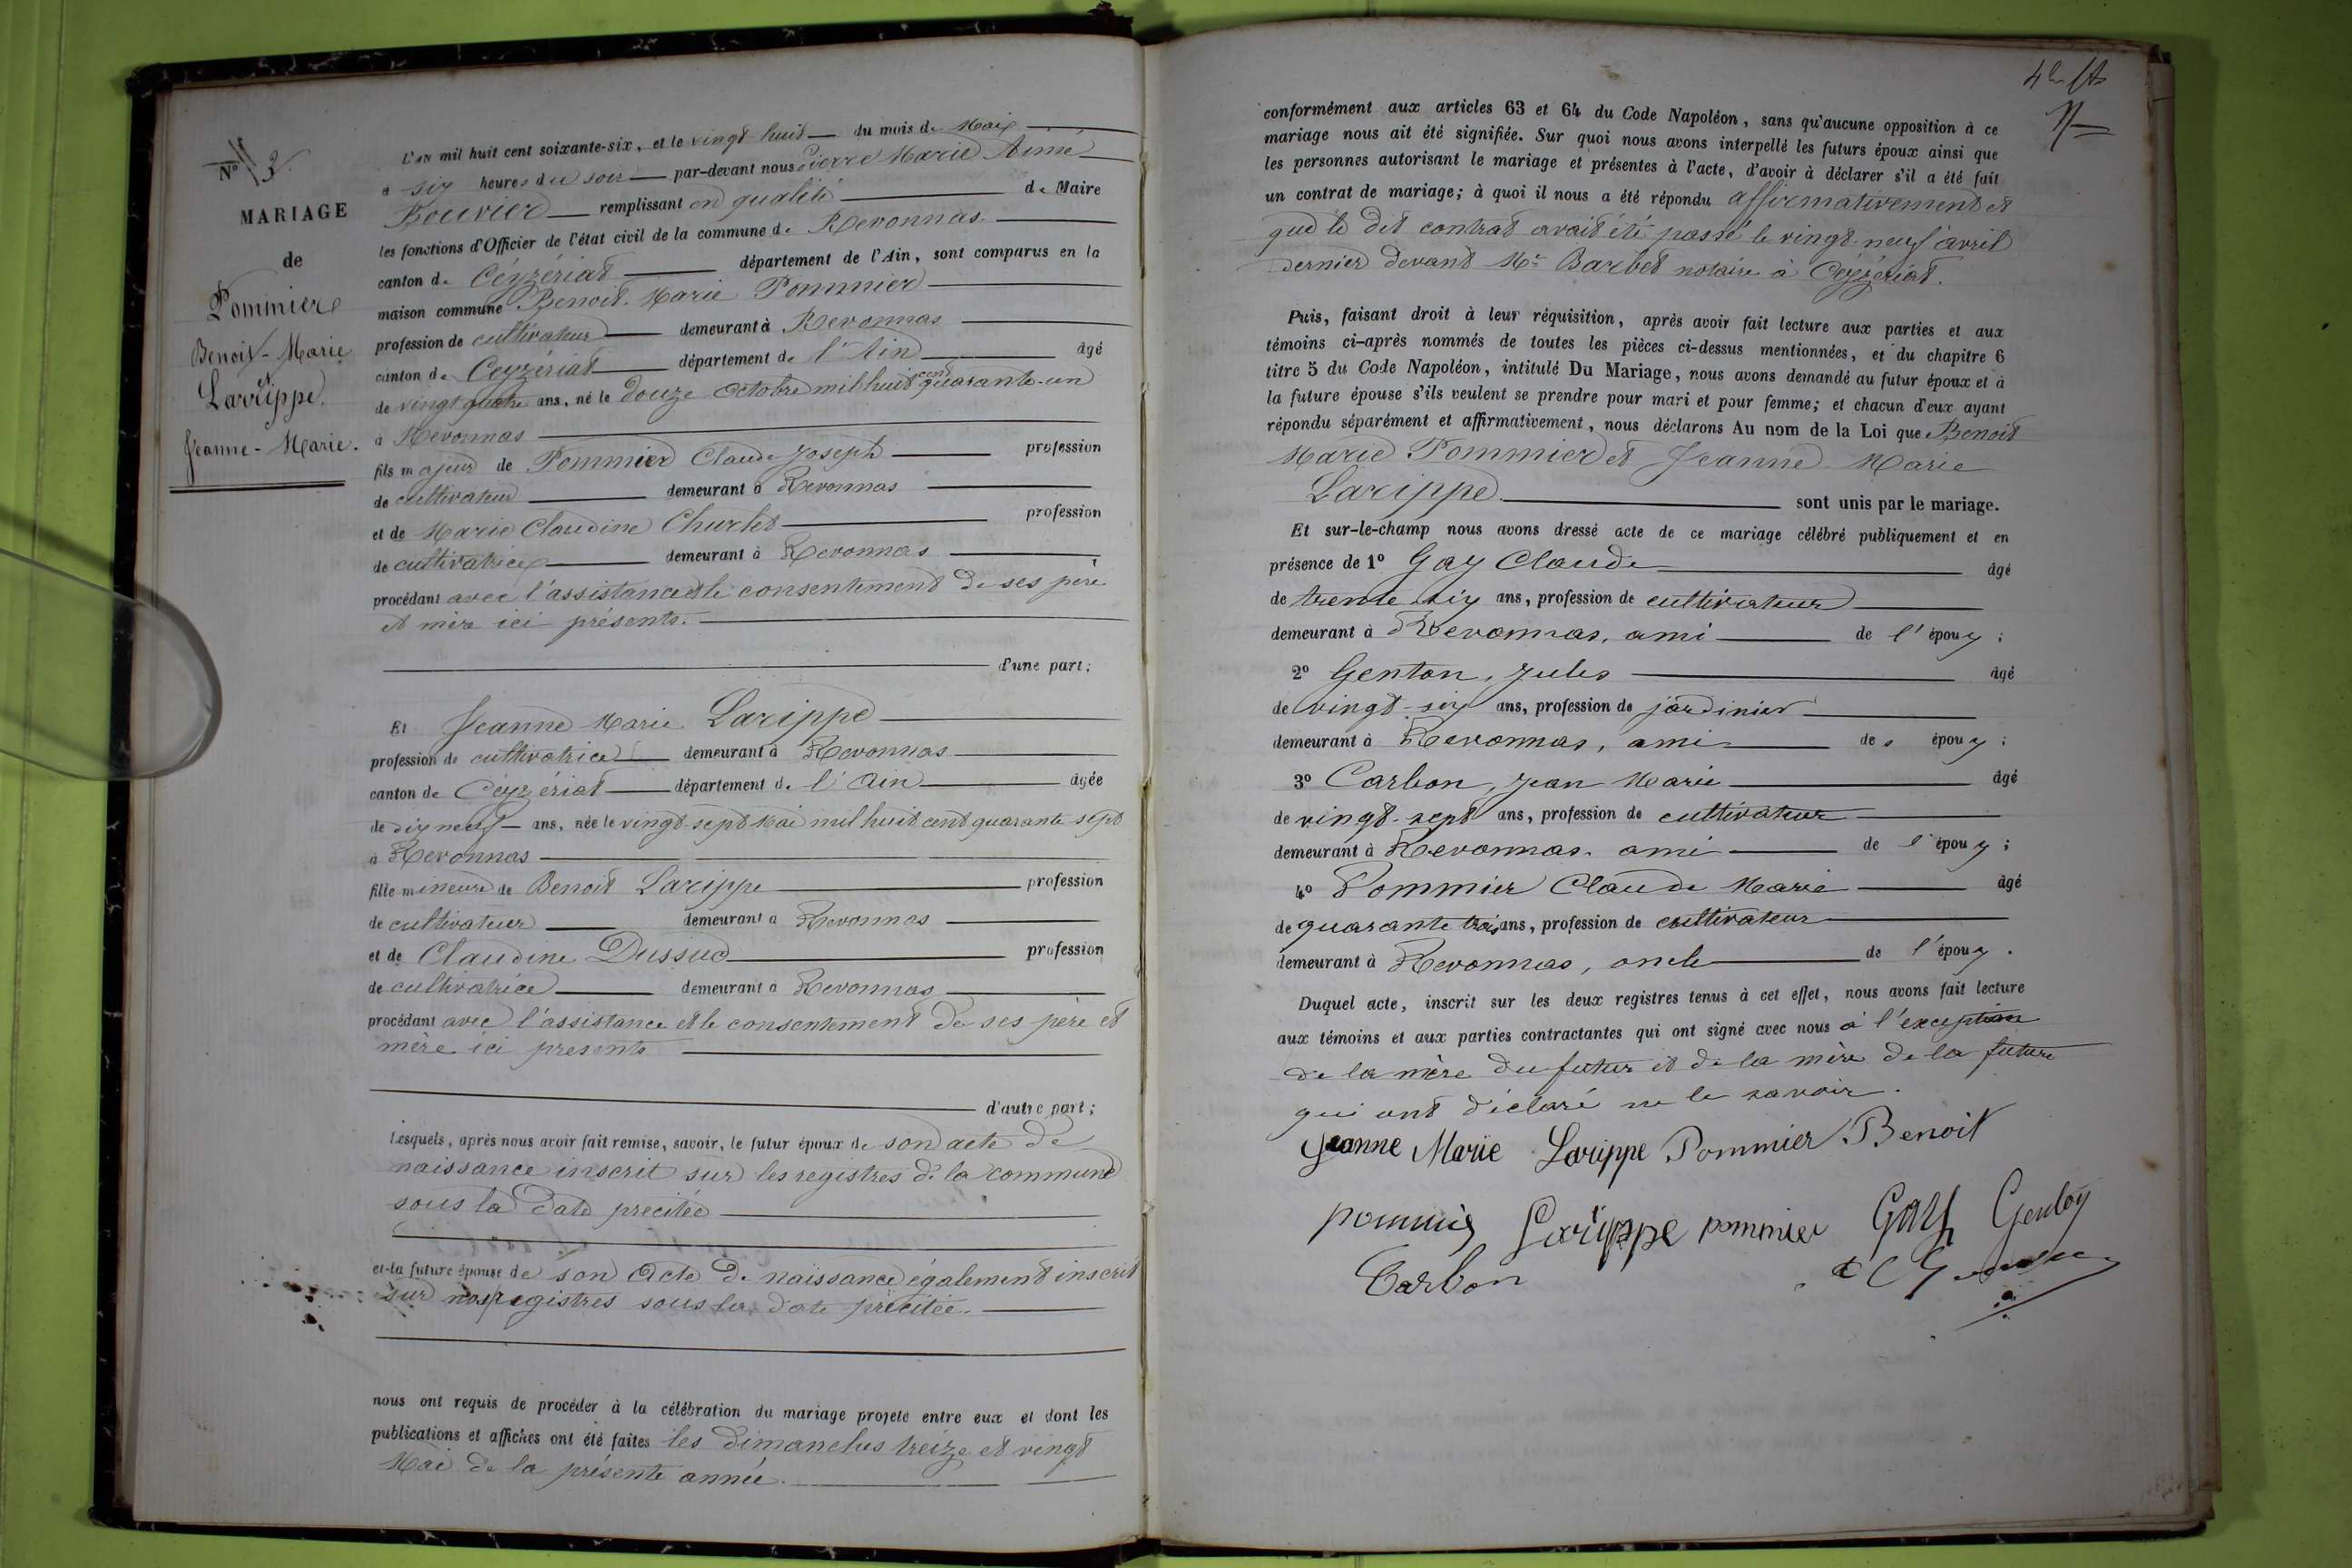 N° 3.
MARIAGE
de
Pommier
Benoit-Marie
et
Larippe
Jeanne-Marie.
L'an mil huit cent soixante-six, et le vingt huit du mois de Mai
à six heures du soir par-devant nous Pierre Marie Aimé
Bouvier remplissant en qualité de Maire
les fonctions d'Officier de l'état civil de la commune de Revonnas
canton de Céyzériat département de l'Ain, sont comparus en la
maison commune Benoit Marie Pommier
profession de cultivateur demeurant à Revonnas
canton de Ceyzériat département de l'Ain âgé
de vingt quatre ans, né le douze octobre mil huit cent quarante-un
à Revonnas
fils majeur de Pommier Claude Joseph profession
de cultivateur demeurant à Revonnas
et de Marie Claudine Churlet profession
de cultivatrice demeurant à Revonnas
procédant avec l'assistance et le consentement de ses père
et mère ici présents.
d'une part;
Et Jeanne Marie Larippe
profession de cultivatrice demeurant à Revonnas
canton de Céyzériat département de l'Ain âgée
de dix neuf ans, née le vingt-sept Mai mil huit cent quarante sept
à Revonnas
fille mineure de Benoit Larippe profession
de cultivateur demeurant à Revonnas
et de Claudine Dussuc profession
de cultivatrice demeurant à Revonnas
procédant avec l'assistance et le consentement de ses père et
mère ici presents
d'autre part;
Lesquels, après nous avoir fait remise, savoir, le futur époux de son acte de
naissance inscrit sur les registres de la commune
sous la date precitée
et la future épouse de son Acte de naissance également inscrit
sur nos registres sous la date précitée.
nous ont requis de procéder à la célébration du mariage projeté entre eux et dont les
publications et affiches ont été faites les dimanches treize et vingt
Mai de la présente année.
conformément aux articles 63 et 64 du Code Napoléon, sans qu'aucune opposition à ce
mariage nous ait été signifiée. Sur quoi nous avons interpellé les futurs époux ainsi que
les personnes autorisant le mariage et présentes à l'acte, d'avoir à déclarer s'il a été fait
un contrat de mariage; à quoi il nous a été répondu affirmativement et
que le dit contrat avait été passé le vingt-neuf avril
dernier devant Me Barbet notaire à Céyzériat.
Puis, faisant droit à leur réquisition, après avoir fait lecture aux parties et aux
témoins ci-après nommés de toutes les pièces ci-dessus mentionnées, et du chapitre 6
titre 5 du Code Napoléon, intitulé Du Mariage, nous avons demandé au futur époux et à
la future épouse s'ils veulent se prendre pour mari et pour femme; et chacun d'eux ayant
répondu séparément et affirmativement, nous déclarons Au nom de la Loi que Benoit
Marie Pommier et Jeanne Marie
Larippe sont unis par le mariage.
Et sur-le-champ nous avons dressé acte de ce mariage célébré publiquement et en
présence de 1° Gay Claude âgé
de trente six ans, profession de cultivateur
demeurant à Revonnas, ami de l'époux;
2° Genton, Jules âgé
de vingt-six ans, profession de jardinier
demeurant à Revonnas, ami des époux;
3° Carbon, Jean Marie âgé
de vingt-sept ans, profession de cultivateur
demeurant à Revonnas. ami de l'époux;
4° Pommier Claude Marie âgé
de quarante trois ans, profession de cultivateur
demeurant à Revonnas, oncle de l'époux.
Duquel acte, inscrit sur les deux registres tenus à cet effet, nous avons fait lecture
aux témoins et aux parties contractantes qui ont signé avec nous à l'exception
de la mère du futur et de la mère de la future
qui ont déclaré ne le savoir.
Jeanne Marie Larippe Pommier Benoit
pommier Larippe pommier Gay Genton
Carbon